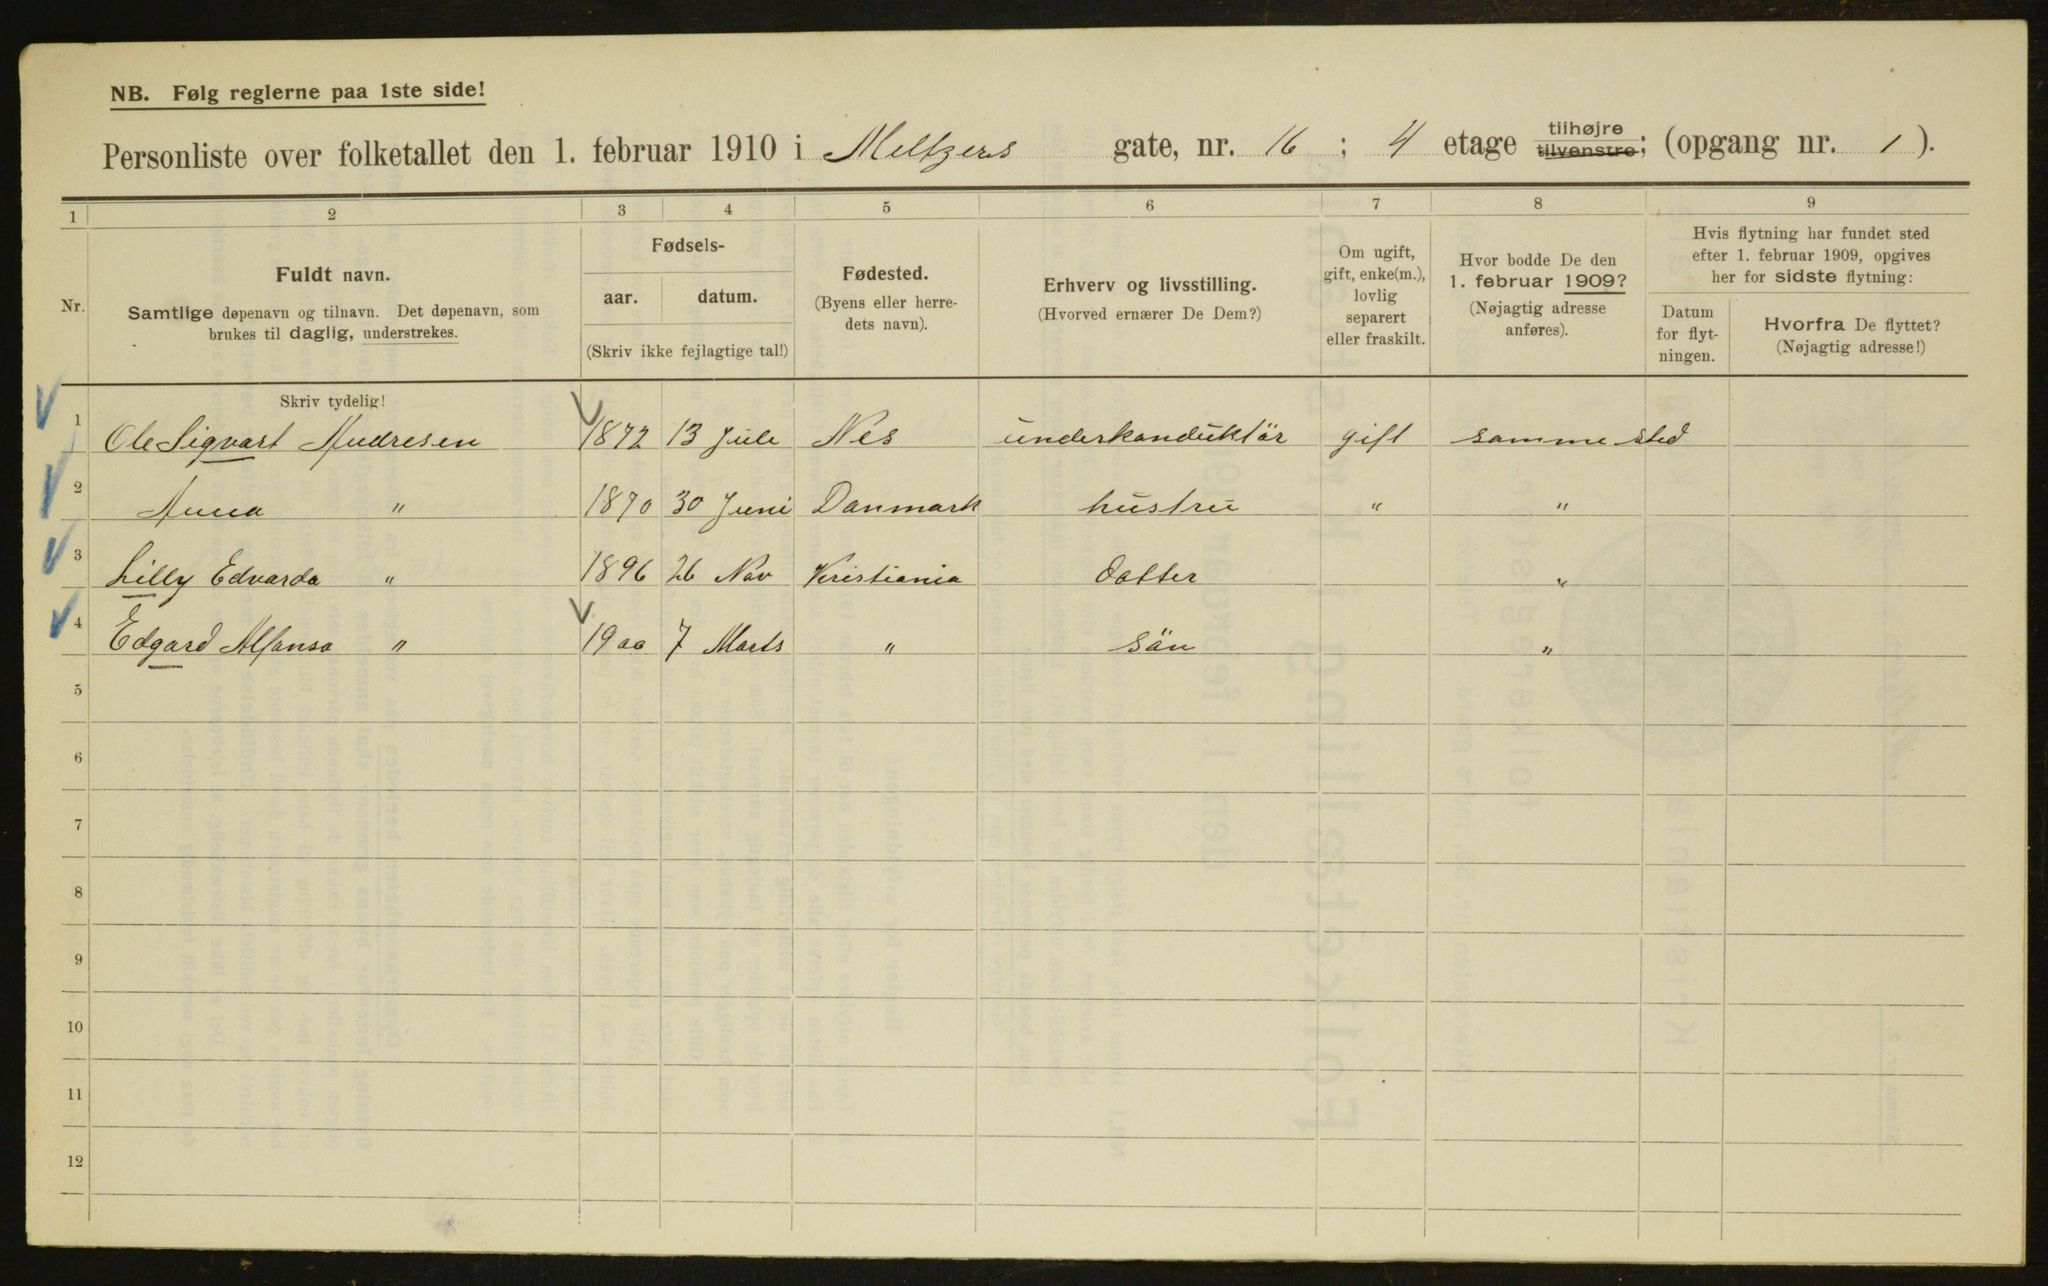 NB. Følg reglerne paa 1ste side!
Personliste over folketallet den 1. februar 1910 i Meltzers gate, nr. 16 ; 4 etage tilhøjre tilvenstre; (opgang nr. 1 ).
1 2 3 4 5 6 7 8 9
Nr.
Fuldt navn.
Samtlige døpenavn og tilnavn. Det døpenavn, som
brukes til daglig, understrekes.
Fødsels-
aar. datum.
(Skriv ikke fejlagtige tal!)
Fødested.
(Byens eller herre-
dets navn).
Erhverv og livsstilling.
(Hvorved ernærer De Dem?)
Om ugift,
gift, enke(m.),
lovlig
separert
eller fraskilt.
Hvor bodde De den
1. februar 1909?
(Nøjagtig adresse
anføres).
Hvis flytning har fundet sted
efter 1. februar 1909, opgives
her for sidste flytning:
Datum
for flyt-
ningen.
Hvorfra De flyttet?
(Nøjagtig adresse!)
Skriv tydelig!
1 Ole Sigvart Andresen 1872 13 Juli Nes underkonduktör gift samme sted
2 Anna " 1870 30 Juni Danmark hustru " "
3 Lilly Edvarda " 1896 26 Nov Kristiania datter "
4 Edgard Alfonso " 1900 7 Marts " sön "
5
6
7
8
9
10
11
12